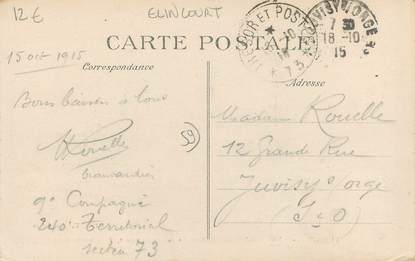 12€ ELINCOURT
TRESOR ET POSTES
* 73 *
JUVISY S/ ORGE
7 30
18-10
15
CARTE POSTALE
15 oct 1915
Correspondance
Adresse
Bons baisers à tous
Rouelle
9e Compagnie
240e Territorial
secteur 73
59
Madame Rouelle
12 Grande Rue
Juvisy s/orge
(S & O)